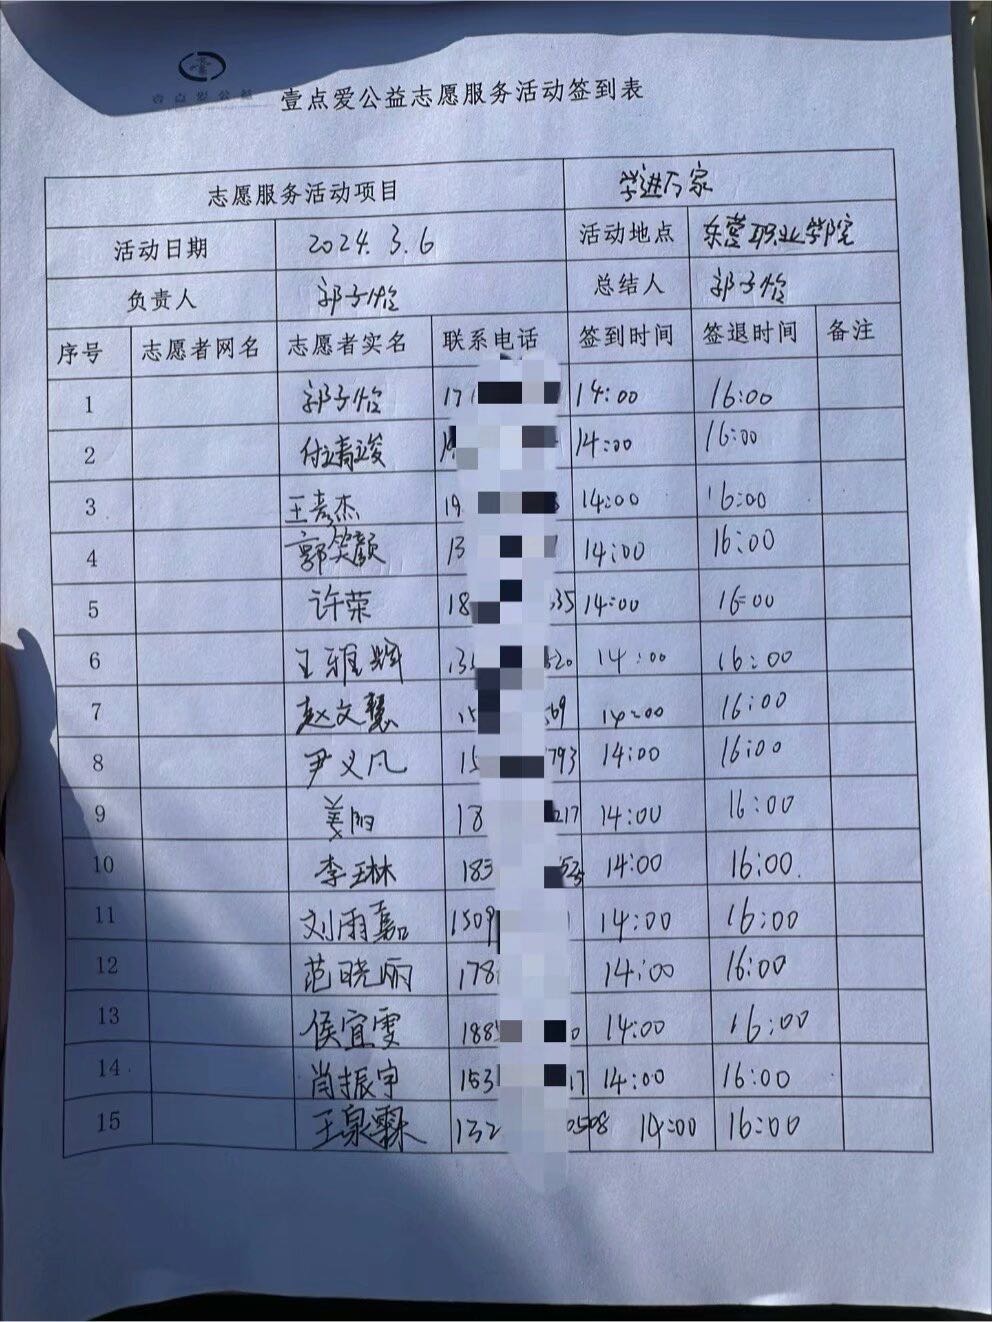 壹点爱公益
壹点爱公益志愿服务活动签到表
志愿服务活动项目 学进万家
活动日期 2024.3.6 活动地点 东营职业学院
负责人 郭子怡 总结人 郭子怡
序号 志愿者网名 志愿者实名 联系电话 签到时间 签退时间 备注
1 郭子怡 17 14:00 16:00
2 付靖竣 14:00 16:00
3 王彦杰 19 14:00 16:00
4 郭笑颜 13 14:00 16:00
5 许荣 18 535 14:00 16:00
6 王雅辉 13 520 14:00 16:00
7 赵文慧 15 569 14:00 16:00
8 尹义凡 15 793 14:00 16:00
9 姜阳 18 217 14:00 16:00
10 李玉琳 183 14:00 16:00
11 刘雨嘉 1509 14:00 16:00
12 范晓丽 178 14:00 16:00
13 侯宜雯 188 0 14:00 16:00
14 肖振宇 153 17 14:00 16:00
15 王泉霖 132 0508 14:00 16:00